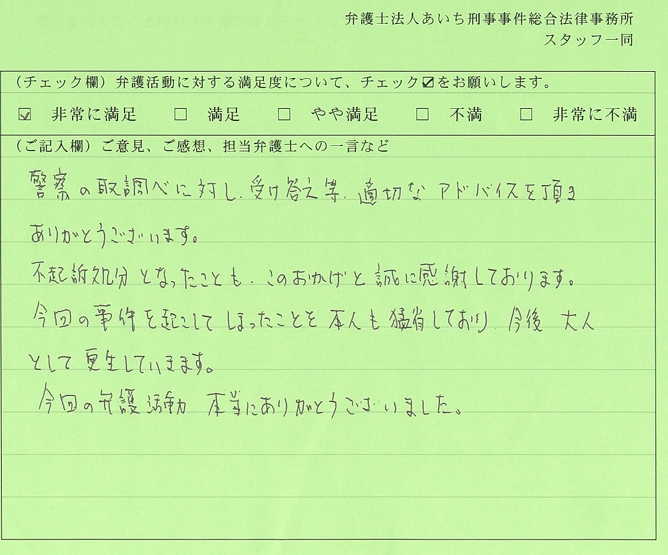 弁護士法人あいち刑事事件総合法律事務所
スタッフ一同
（チェック欄）弁護活動に対する満足度について、チェック☑をお願いします。
☑ 非常に満足 □ 満足 □ やや満足 □ 不満 □ 非常に不満
（ご記入欄）ご意見、ご感想、担当弁護士への一言など
警察の取調べに対し、受け答え等、適切なアドバイスを頂き
ありがとうございます。
不起訴処分となったことも、このおかげと誠に感謝しております。
今回の事件を起こしてしまったことを本人も猛省しており、今後 大人
として更生していきます。
今回の弁護活動 本当にありがとうございました。